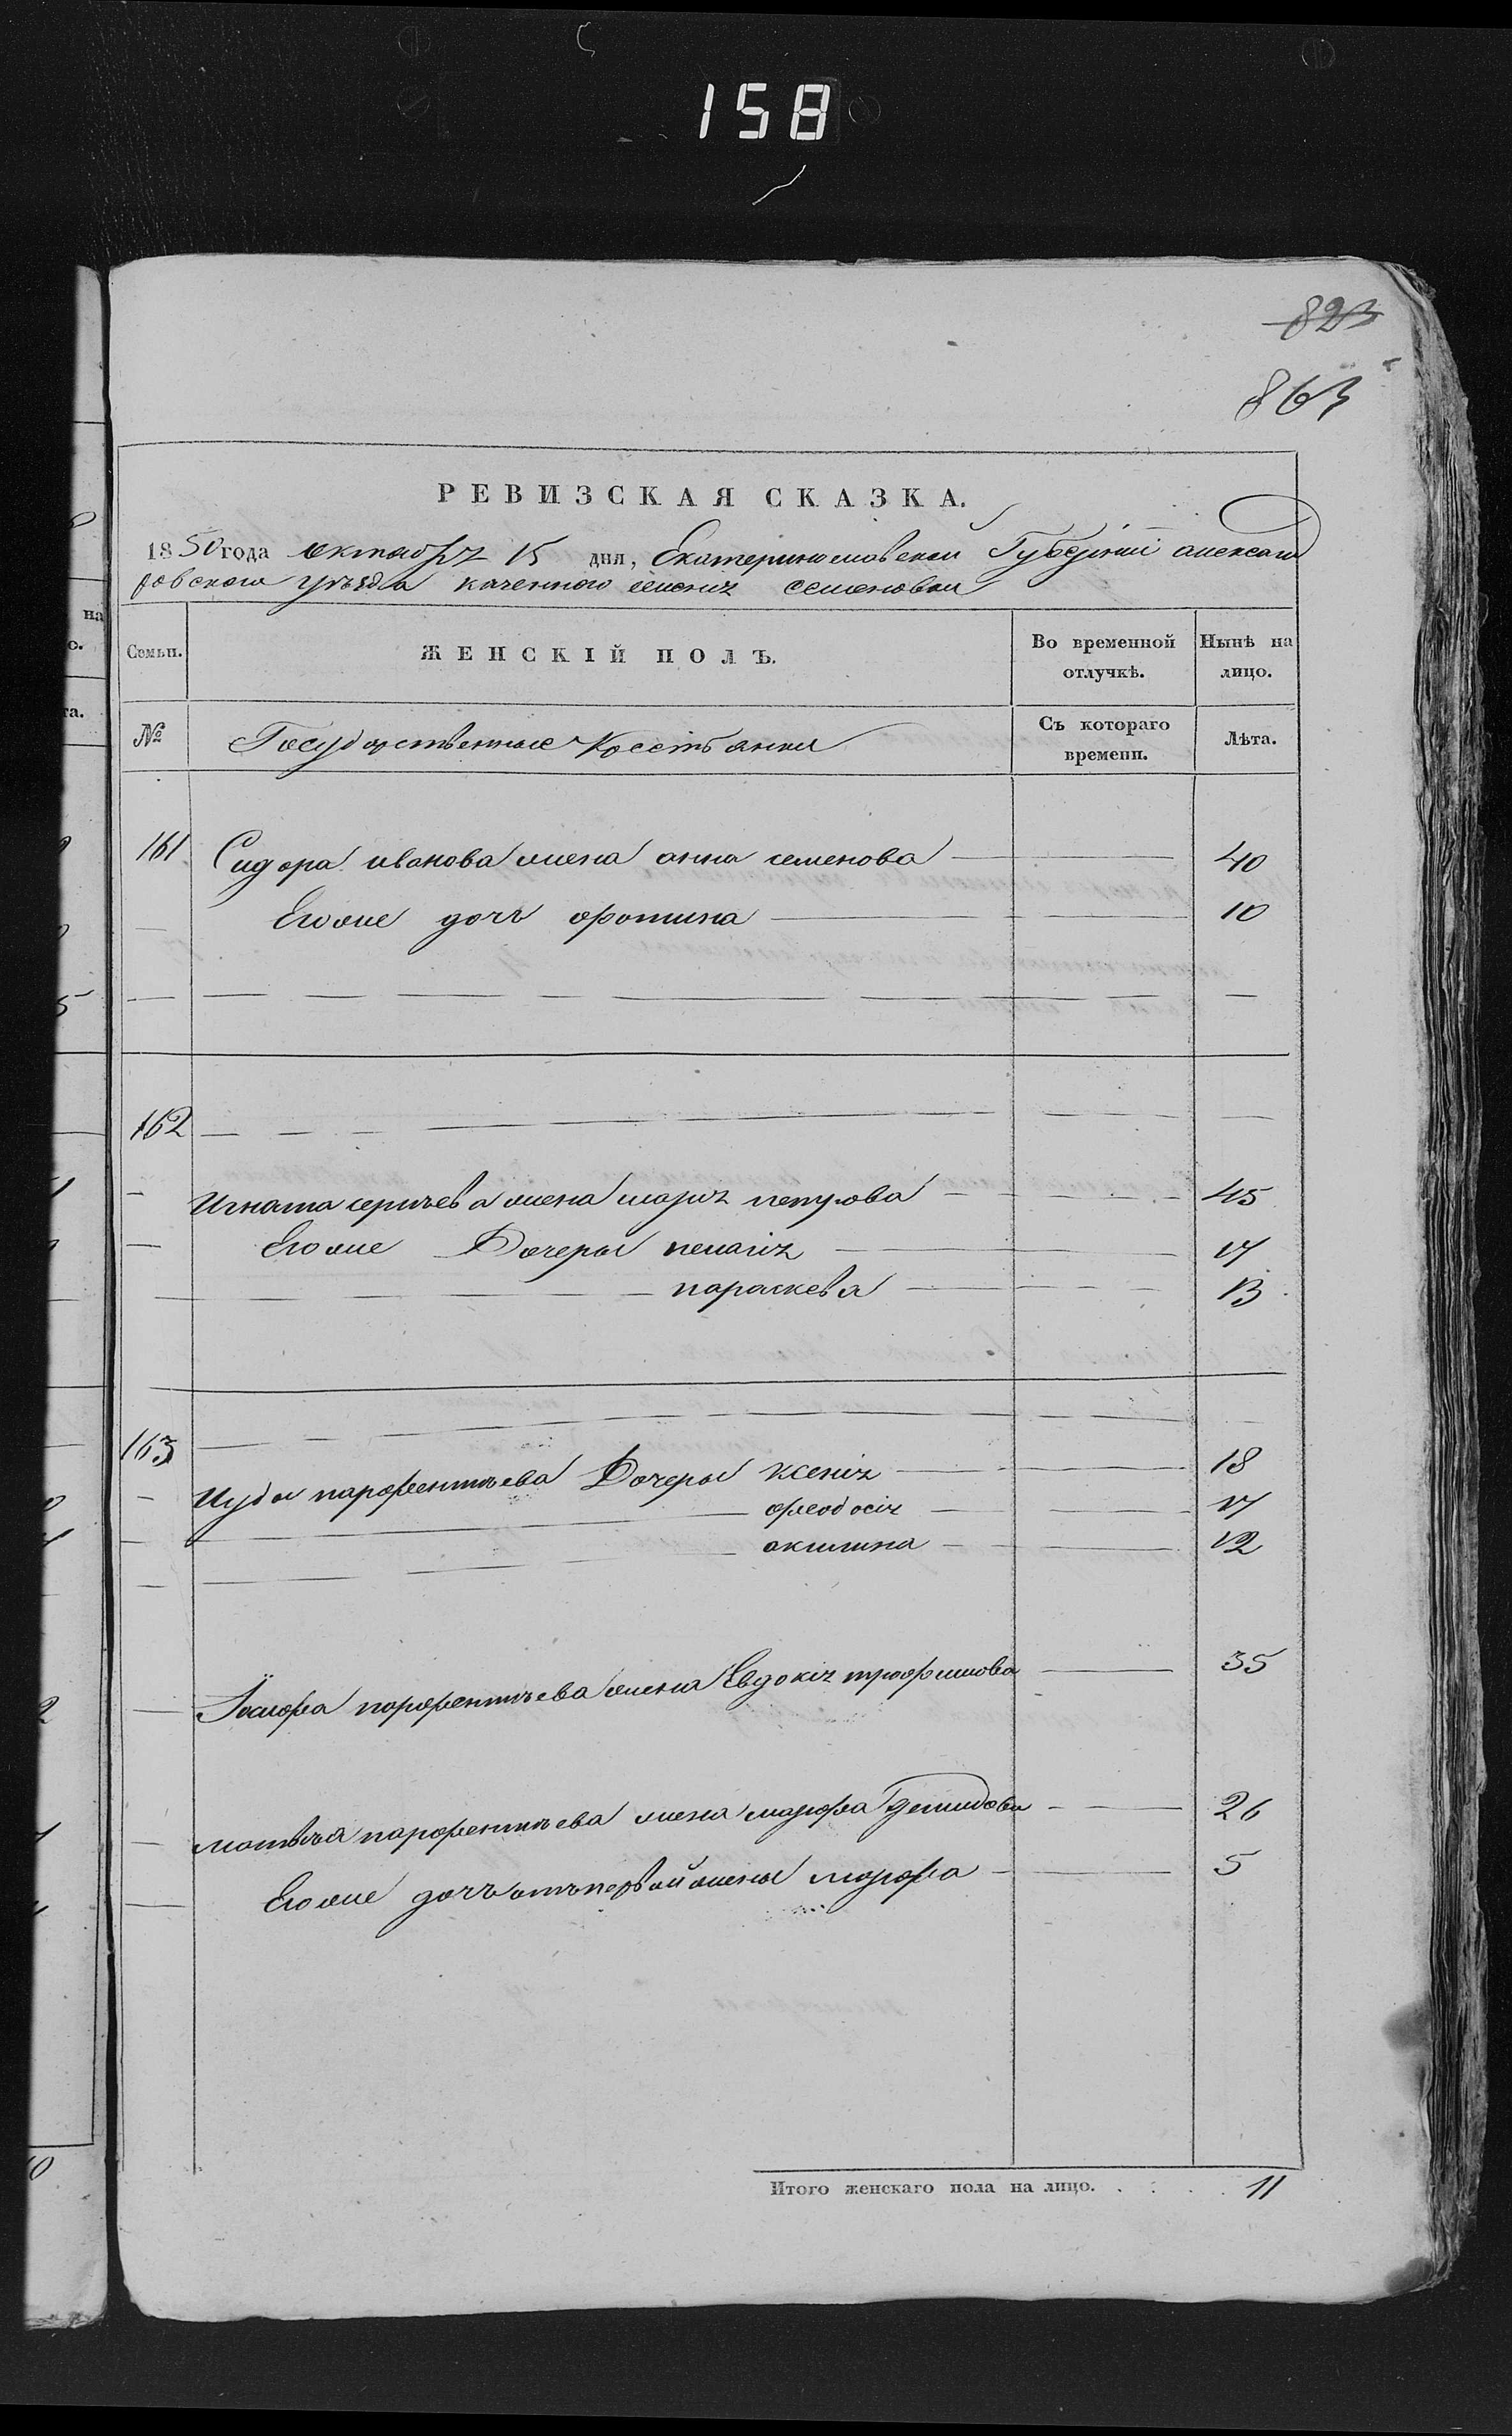 158
823
863
РЕВИЗСКАЯ СКАЗКА.
1850 года октября 15 дня, Екатеринославской Губернiи александ
ровского уѣзда казенного селенiя семеновки
Семьи. ЖЕНСКIЙ ПОЛЪ. Во временной отлучкѣ. Нынѣ на лицо.
№ Государственные Крестьянки Съ котораго времени. Лѣта.
161 Сидора иванова жена анна семенова 40
Его же дочь фотина 10
162
Игната сергѣева жена марiя петрова 45
Его же Дочеры пелагiя 17
параскева 13
163
Иуды парфентьева Дочеры ксенiя 18
феодосiя 17
акилина 12
Iосифа парфентьева жена Евдокiя трофимова 35
матвѣя парфентьева жена марфа демидова 26
Его же дочь отъ первой жены марфа 5
Итого женскаго пола на лицо. 11